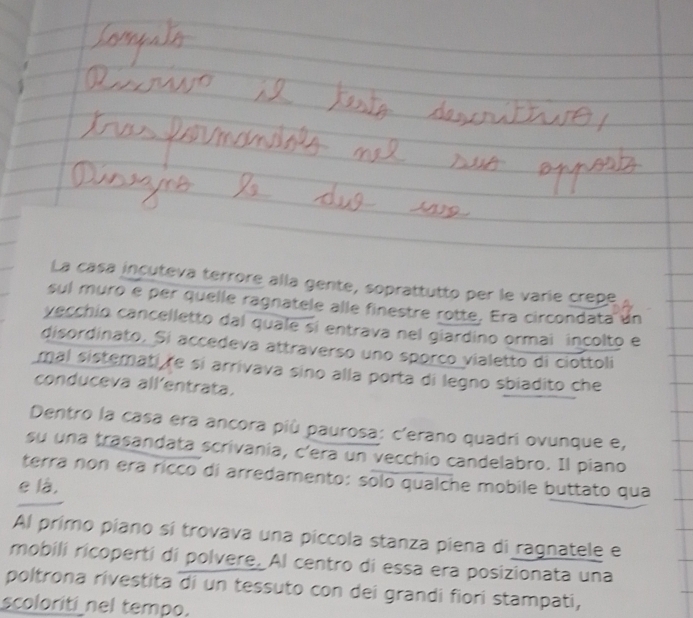 Compito
Riscrivo il testo descrittivo,
trasformandolo nel suo opposto
Disegno le due
La casa incuteva terrore alla gente, soprattutto per le varie crepe
sul muro e per quelle ragnatele alle finestre rotte. Era circondata da un
vecchio cancelletto dal quale si entrava nel giardino ormai incolto e
disordinato. Si accedeva attraverso uno sporco vialetto di ciottoli
mal sistemati e si arrivava sino alla porta di legno sbiadito che
conduceva all'entrata.
Dentro la casa era ancora più paurosa: c'erano quadri ovunque e,
su una trasandata scrivania, c'era un vecchio candelabro. Il piano
terra non era ricco di arredamento: solo qualche mobile buttato qua
e là.
Al primo piano si trovava una piccola stanza piena di ragnatele e
mobili ricoperti di polvere. Al centro di essa era posizionata una
poltrona rivestita di un tessuto con dei grandi fiori stampati,
scoloriti nel tempo.